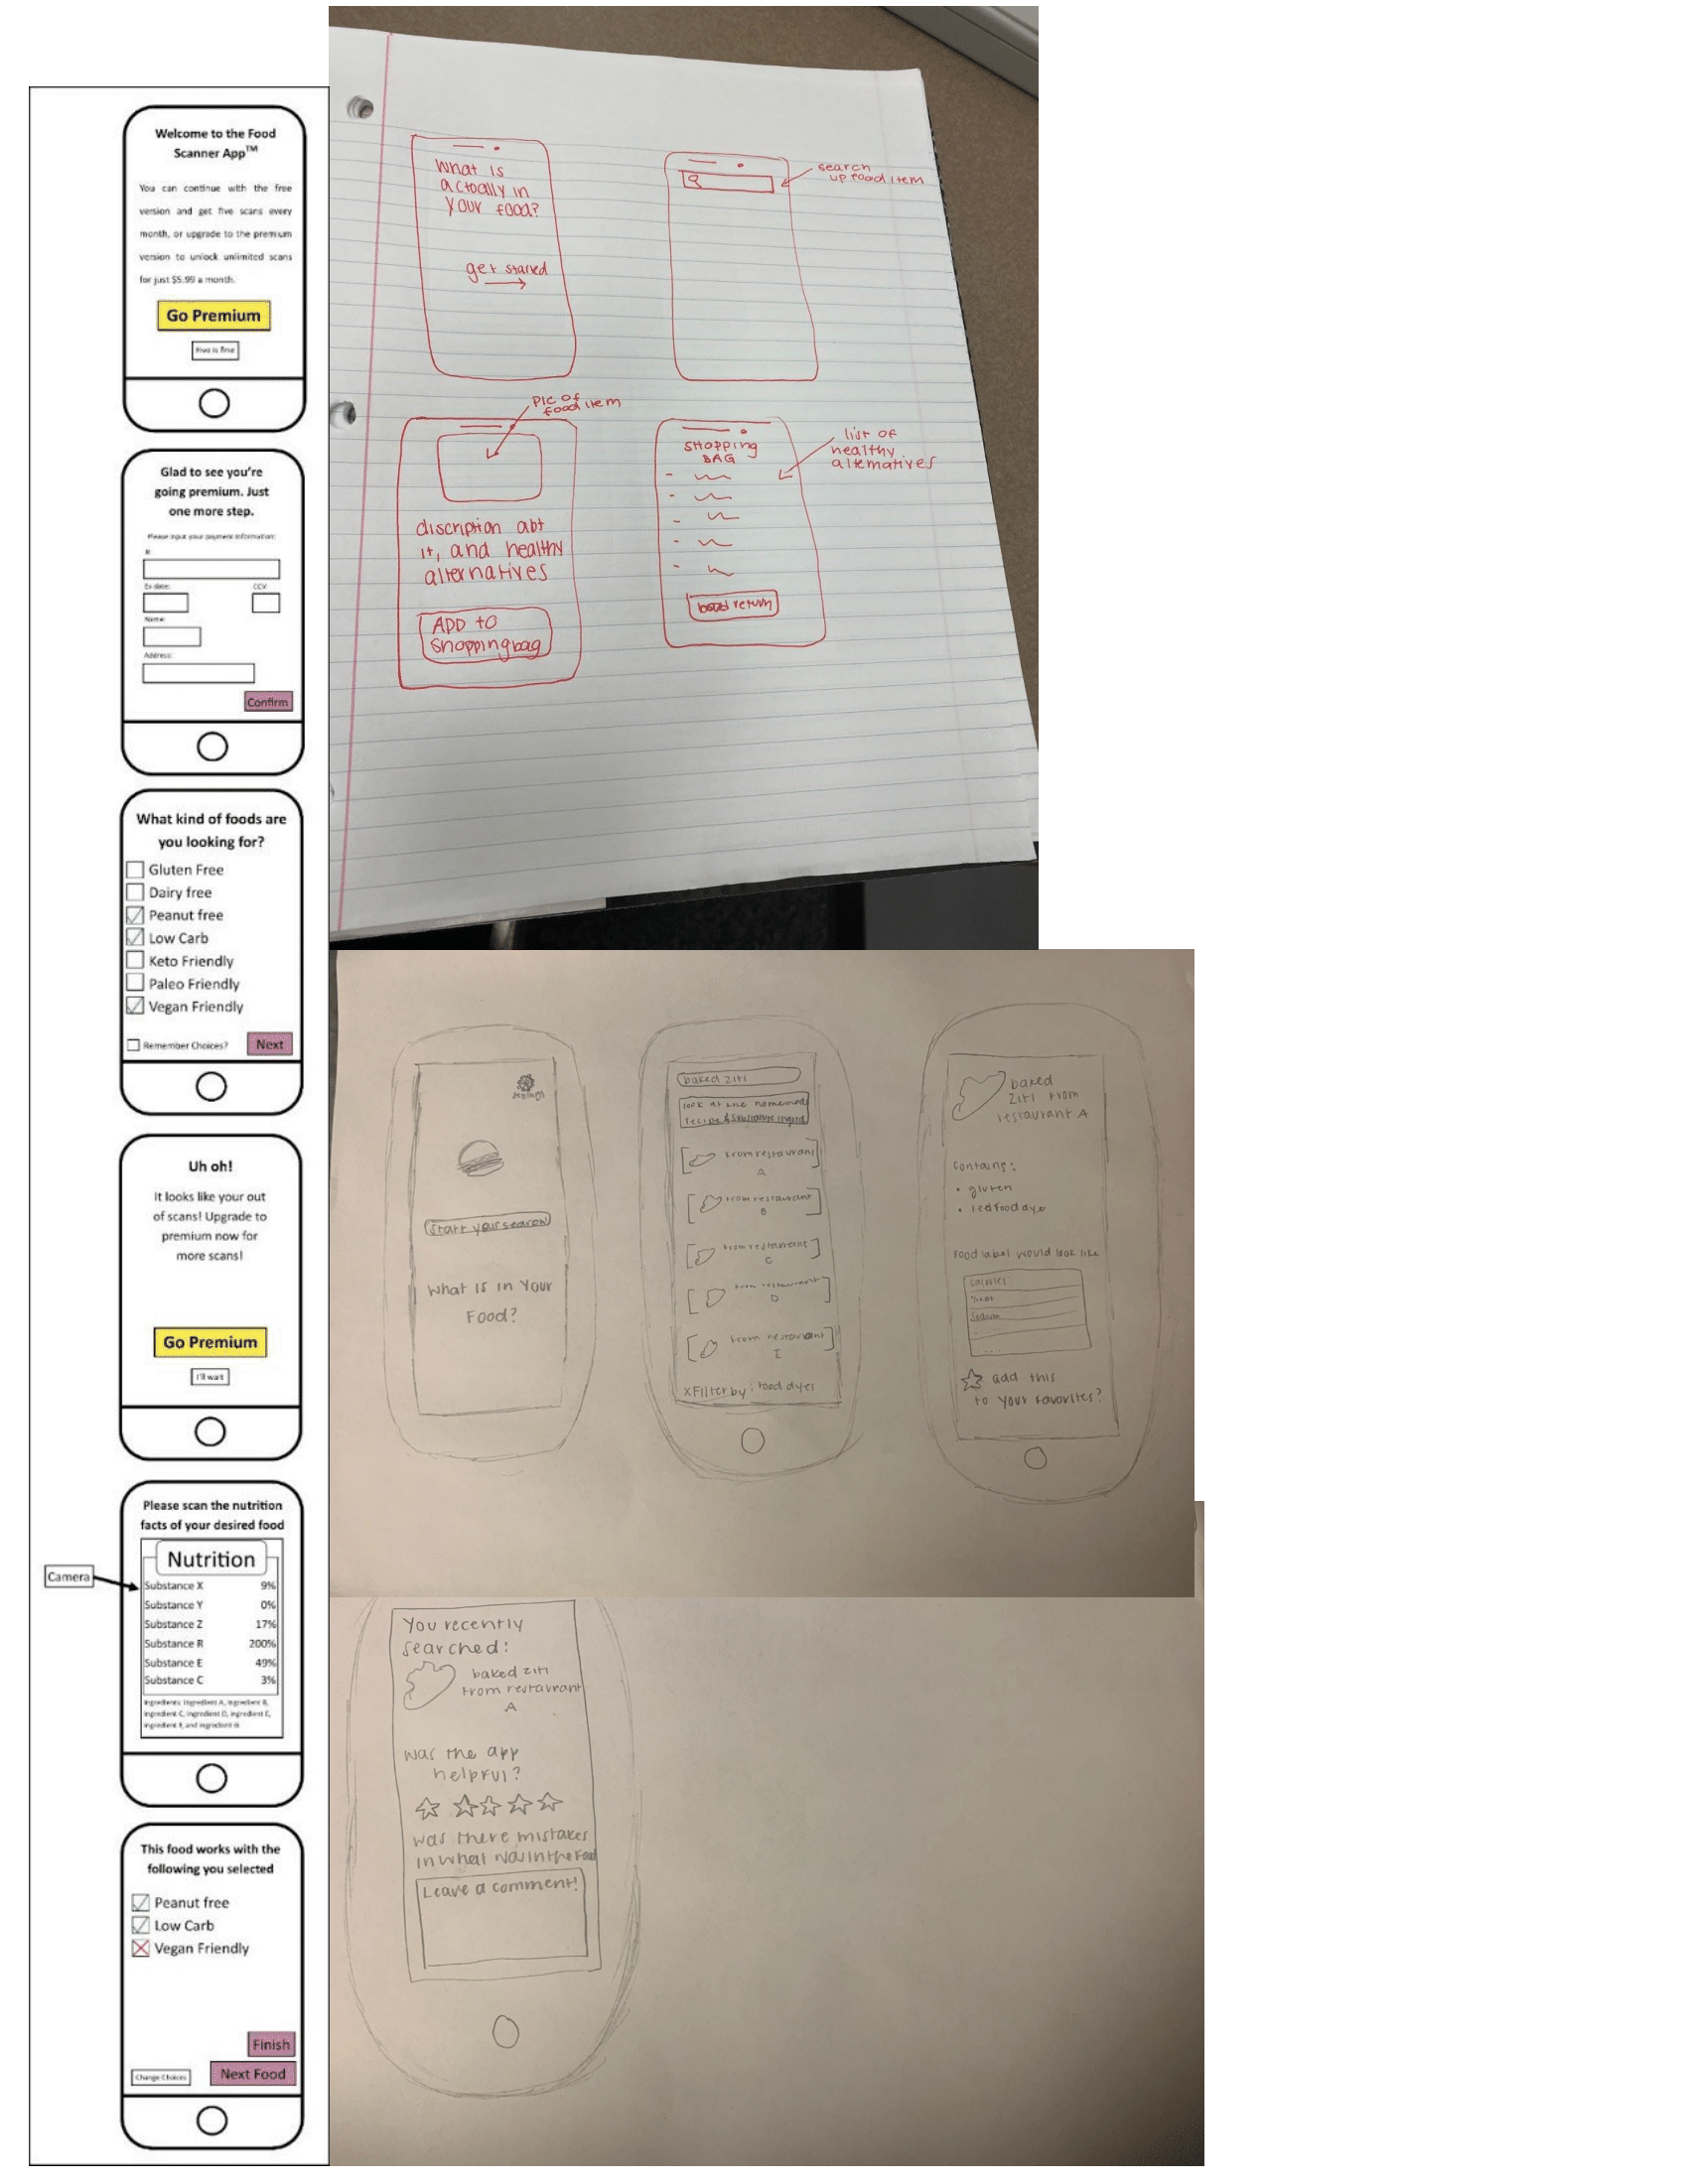 Welcome to the Food
Scanner App™
You can continue with the free
version and get five scans every
month, or upgrade to the premium
version to unlock unlimited scans
for just $5.99 a month.
Go Premium
Five is fine
Glad to see you're
going premium. Just
one more step.
Please input your payment information:
#:
Ex date:
CCV:
Name:
Address:
Confirm
What kind of foods are
you looking for?
Gluten Free
Dairy free
Peanut free
Low Carb
Keto Friendly
Paleo Friendly
Vegan Friendly
Remember Choices?
Next
Uh oh!
It looks like your out
of scans! Upgrade to
premium now for
more scans!
Go Premium
I'll wait
Please scan the nutrition
facts of your desired food
Camera
Nutrition
Substance X 9%
Substance Y 0%
Substance Z 17%
Substance R 200%
Substance E 49%
Substance C 3%
Ingredients: Ingredient A, Ingredient B,
Ingredient C, Ingredient D, Ingredient E,
Ingredient F, and Ingredient G
This food works with the
following you selected
Peanut free
Low Carb
Vegan Friendly
Finish
Change Choices
Next Food
What is
actually in
your food?
get started
search
up food item
Pic of
food item
discription abt
it, and healthy
alternatives
ADD to
shoppingbag
SHOPPING
BAG
list of
healthy
alternatives
return
settings
Start your search
What is in Your
Food?
baked ziti
look at the homemade
recipe & substitute
from restaurant
A
from restaurant
B
from restaurant
C
from restaurant
D
from restaurant
I
X Filter by: food dyes
baked
ziti from
restaurant A
Contains:
• gluten
• red food dye
Food label would look like
calories:
Sodium
....
add this
to your favorites?
You recently
searched:
baked ziti
from restaurant
A
was the app
helpful?
was there mistakes
in what was in the food
Leave a comment!